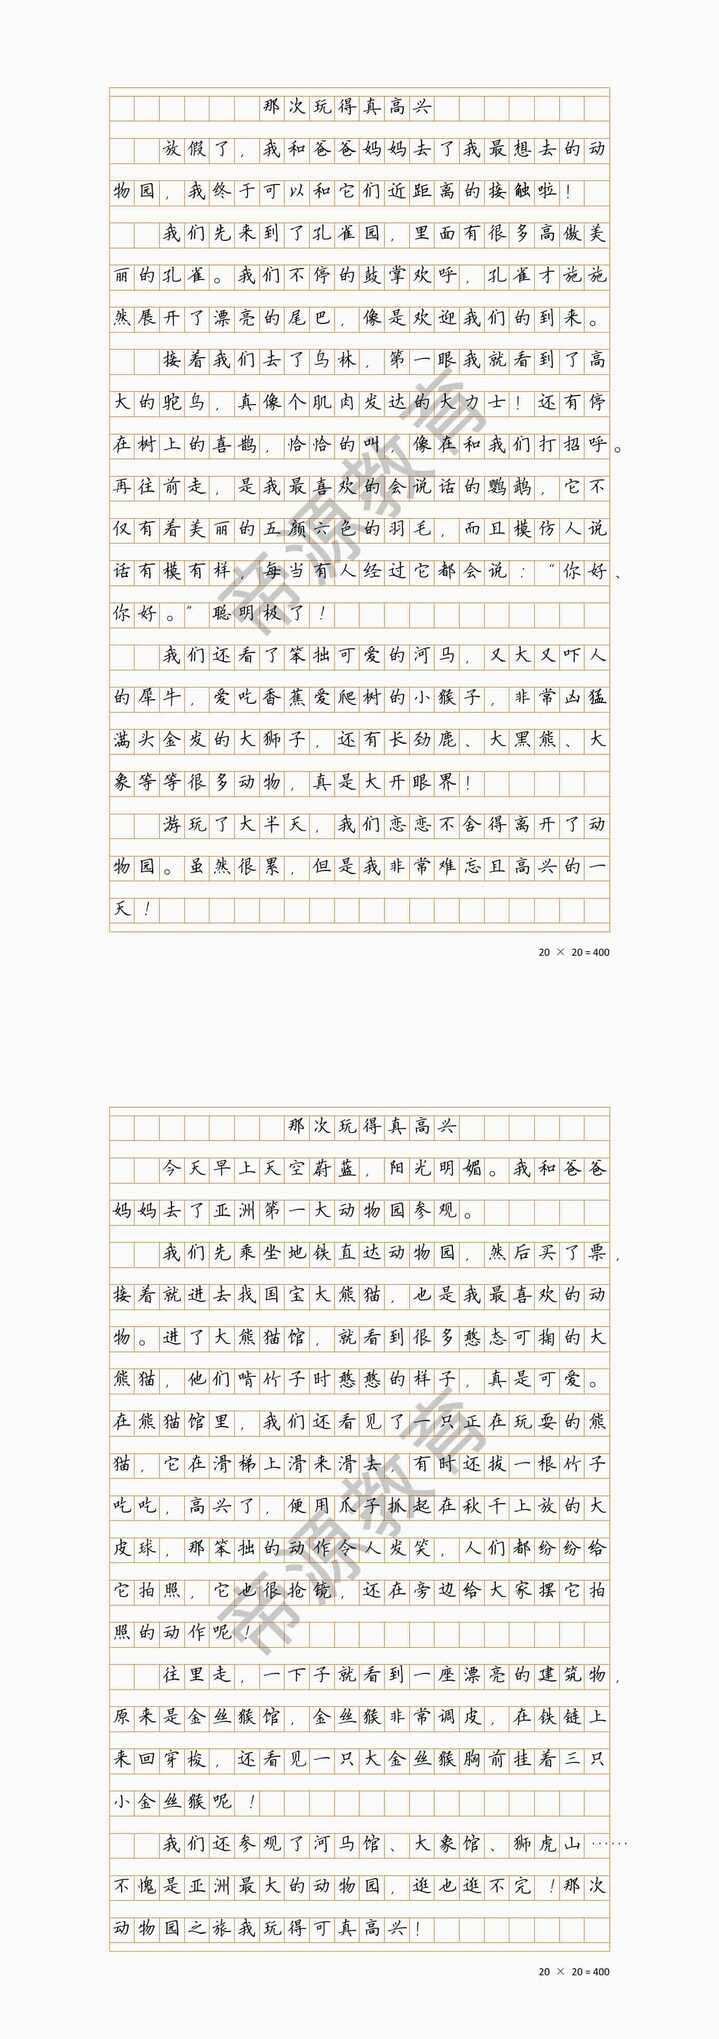 那次玩得真高兴
放假了，我和爸爸妈妈去了我最想去的动
物园，我终于可以和它们近距离的接触啦！
我们先来到了孔雀园，里面有很多高傲美
丽的孔雀。我们不停的鼓掌欢呼，孔雀才施施
然展开了漂亮的尾巴，像是欢迎我们的到来。
接着我们去了鸟林，第一眼我就看到了高
大的驼鸟，真像个肌肉发达的大力士！还有停
在树上的喜鹊，恰恰的叫，像在和我们打招呼。
再往前走，是我最喜欢的会说话的鹦鹉，它不
仅有着美丽的五颜六色的羽毛，而且模仿人说
话有模有样，每当有人经过它都会说：“你好、
你好。”聪明极了！
我们还看了笨拙可爱的河马，又大又吓人
的犀牛，爱吃香蕉爱爬树的小猴子，非常凶猛
满头金发的大狮子，还有长劲鹿、大黑熊、大
象等等很多动物，真是大开眼界！
游玩了大半天，我们恋恋不舍得离开了动
物园。虽然很累，但是我非常难忘且高兴的一
天！
20 × 20 = 400
那次玩得真高兴
今天早上天空蔚蓝，阳光明媚。我和爸爸
妈妈去了亚洲第一大动物园参观。
我们先乘坐地铁直达动物园，然后买了票，
接着就进去找国宝大熊猫，也是我最喜欢的动
物。进了大熊猫馆，就看到很多憨态可掬的大
熊猫，他们啃竹子时憨憨的样子，真是可爱。
在熊猫馆里，我们还看见了一只正在玩耍的熊
猫，它在滑梯上滑来滑去，有时还拔一根竹子
吃吃，高兴了，便用爪子抓起在秋千上放的大
皮球，那笨拙的动作令人发笑，人们都纷纷给
它拍照，它也很抢镜，还在旁边给大家摆它拍
照的动作呢！
往里走，一下子就看到一座漂亮的建筑物，
原来是金丝猴馆，金丝猴非常调皮，在铁链上
来回穿梭，还看见一只大金丝猴胸前挂着三只
小金丝猴呢！
我们还参观了河马馆、大象馆、狮虎山……
不愧是亚洲最大的动物园，逛也逛不完！那次
动物园之旅我玩得可真高兴！
20 × 20 = 400
帝源教育
帝源教育